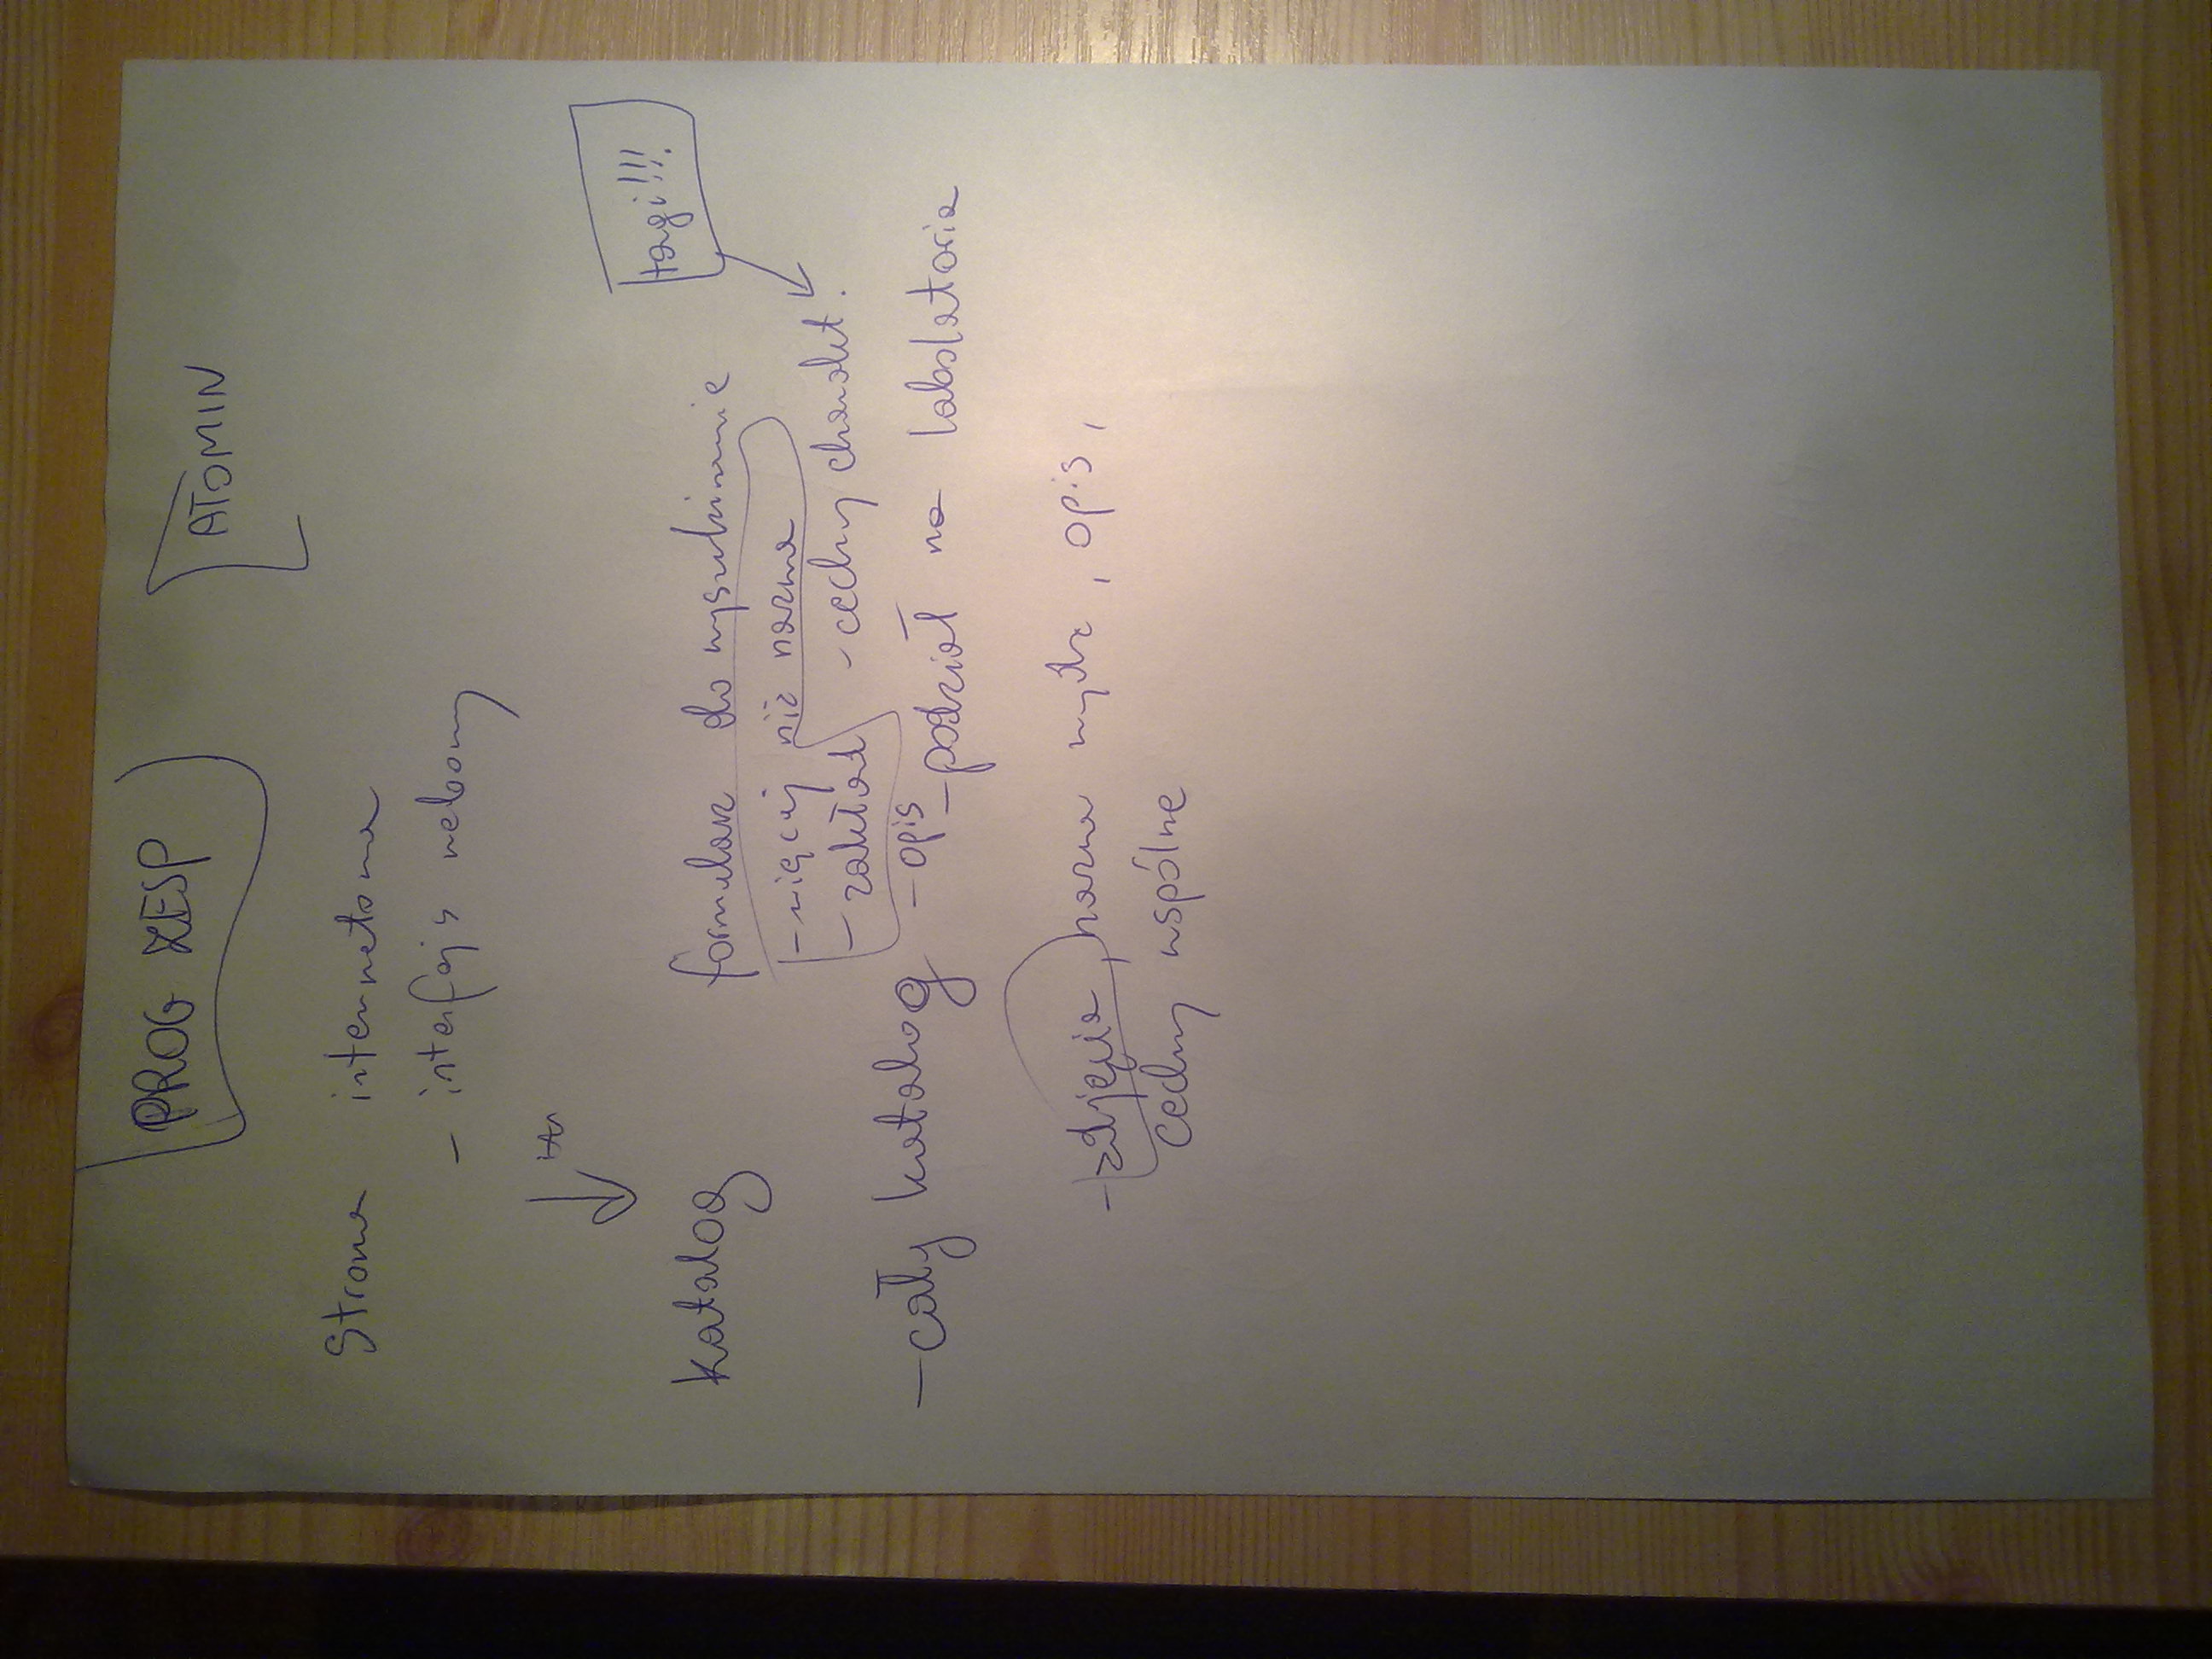 PROG ZESP
ATOMIN
Strona internetowa
- interfejs webowy
katalog
formularz do wyszukiwanie
tagi!!!
- więcej niż nazwa
- zakład
- cechy charakt.
- cały katalog
- opis
- podział na laboratoria
- zdjęcia, nazwa, opis,
cechy wspólne